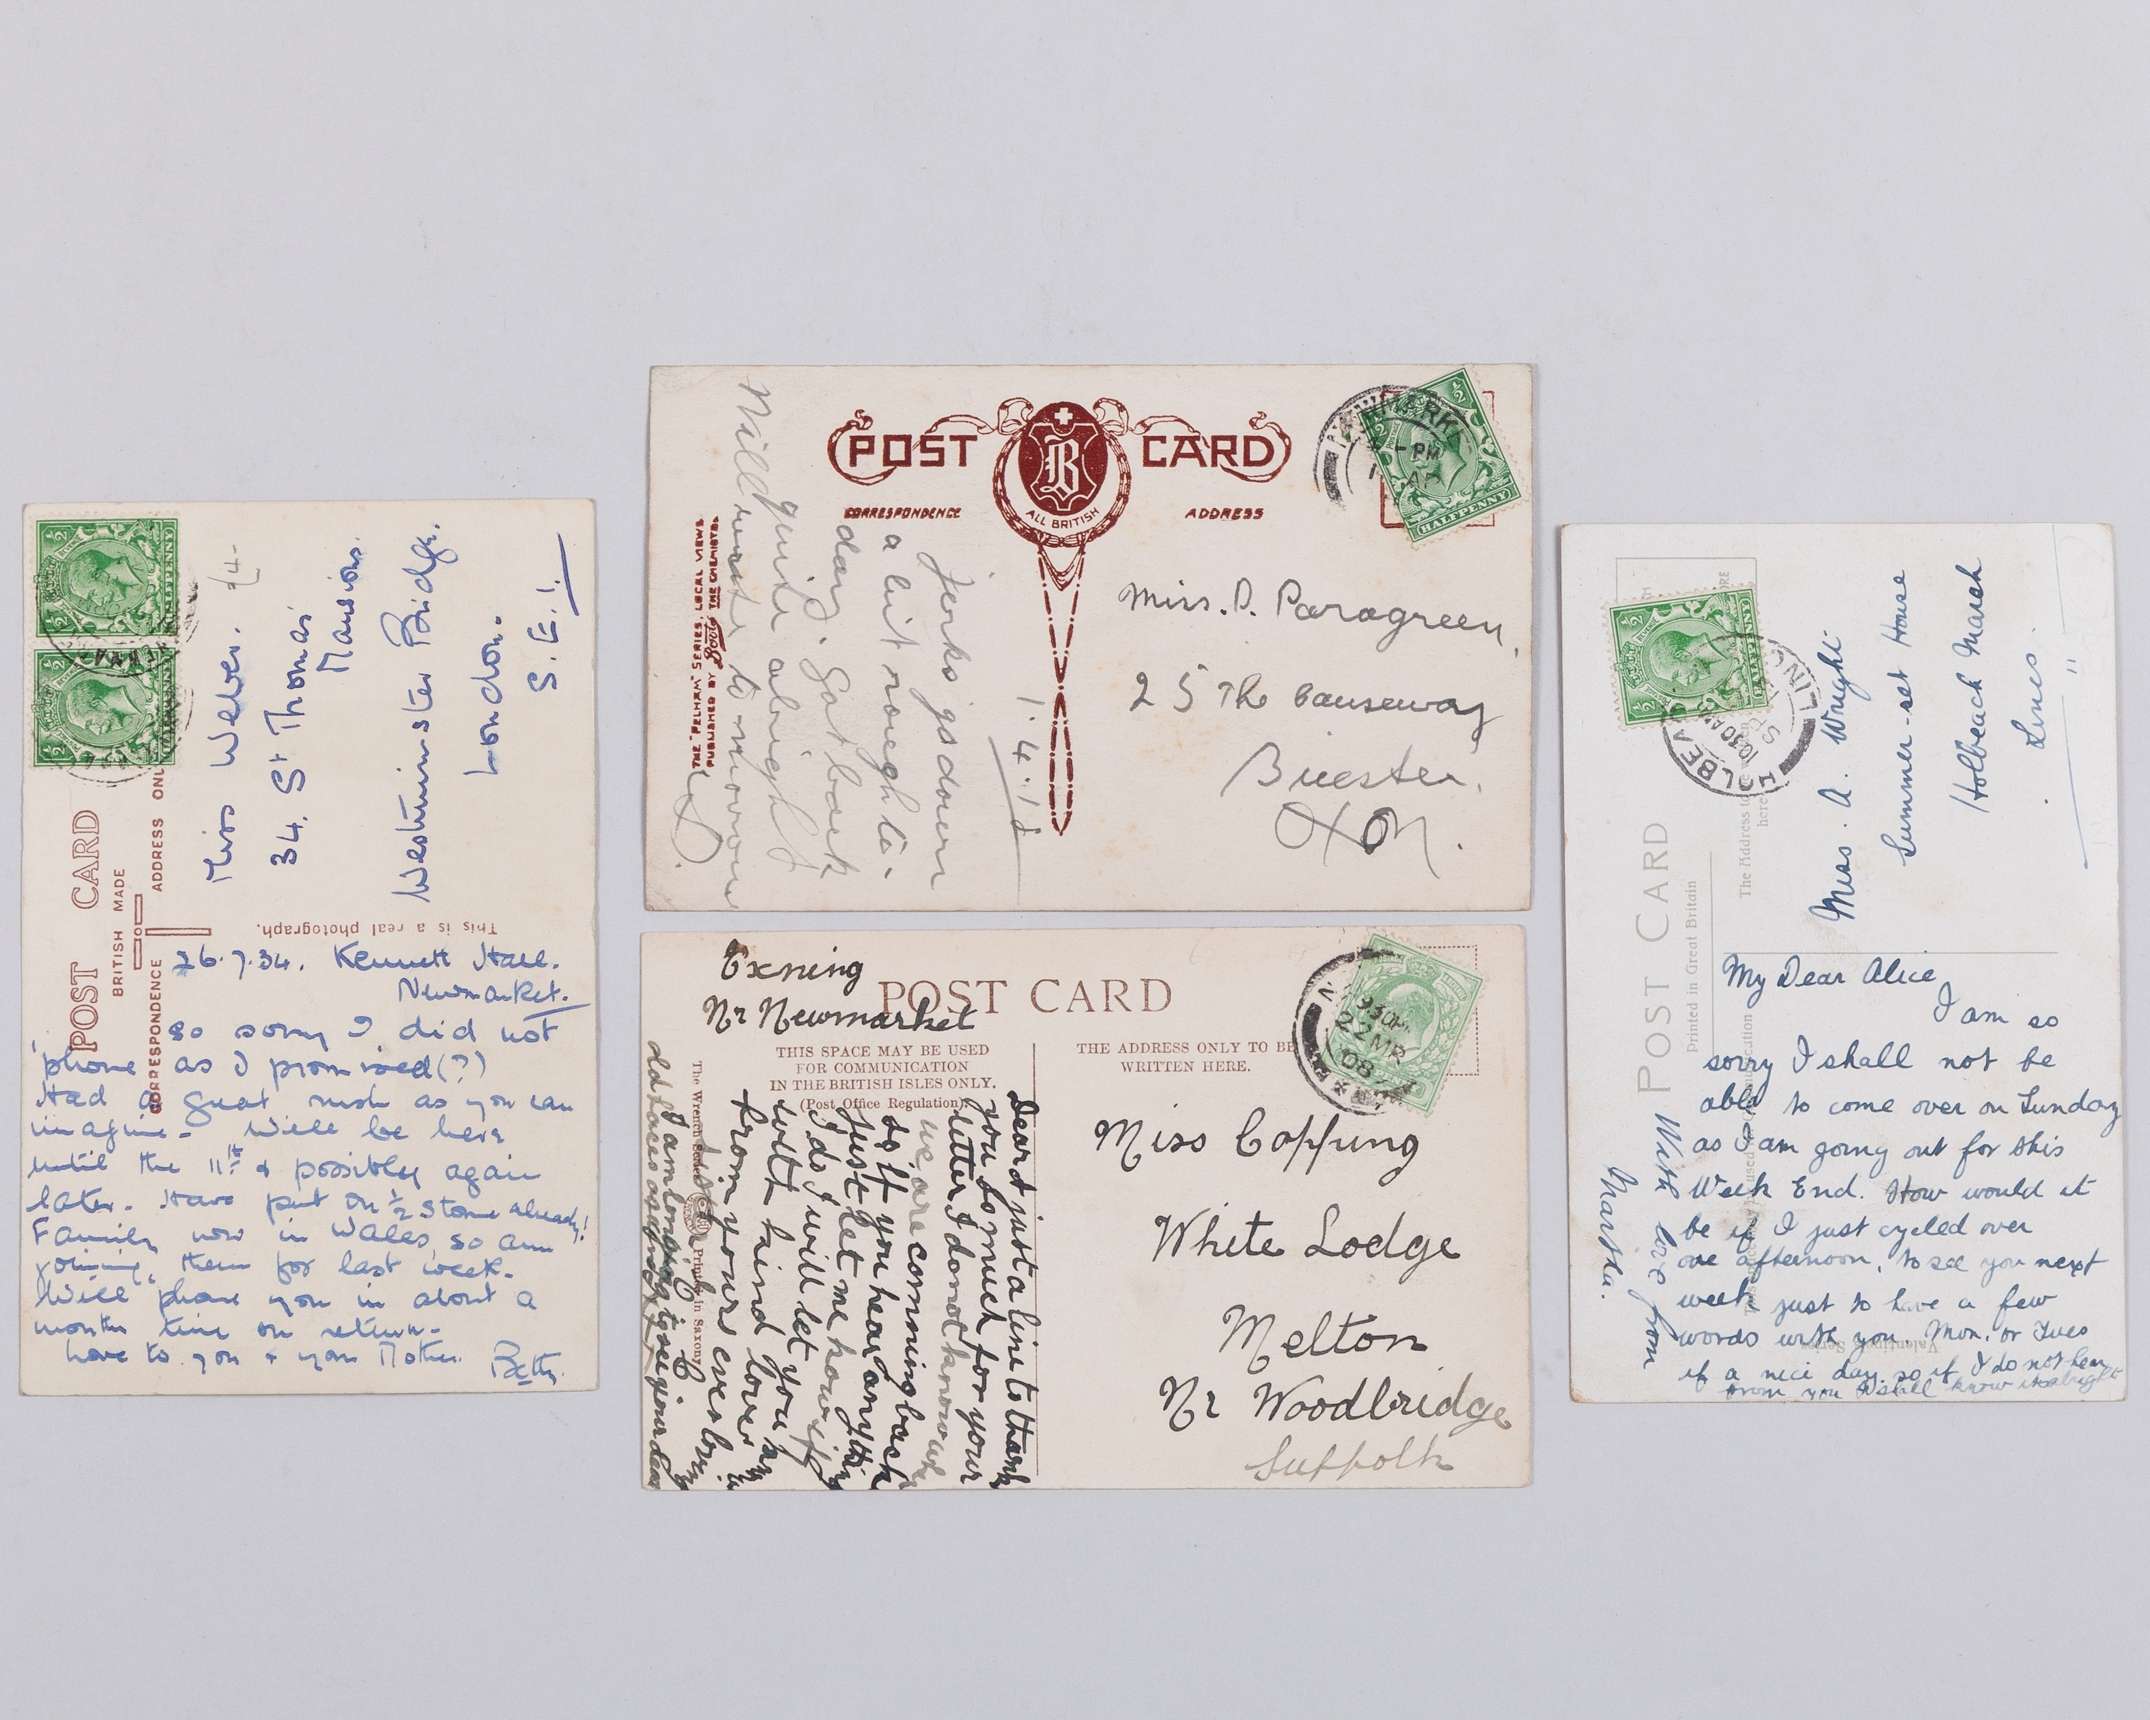 POST CARD
BRITISH MADE
CORRESPONDENCE
ADDRESS ONLY
This is a real photograph.
Miss Weber.
34. St Thomas
Mansions.
Westminster Bridge.
London.
S.E.1.
26.7.34. Kennett Hall.
Newmarket.
so sorry I did not
'phone as I promised(?)
Had a great rush as you can
imagine - Will be here
until the 11th & possibly again
later. Have put on ½ stone already!
Family now in Wales, so am
joining them for last week.
Will phone you in about a
months time on return.
Love to you & your Mother.
Betty.
HALFPENNY
HALFPENNY
POST CARD
ALL BRITISH
CORRESPONDENCE
ADDRESS
THE "PELHAM" SERIES. LOCAL VIEWS
PUBLISHED BY Boots THE CHEMISTS.
1.4.12
a bit rough to-
day. Got back
quite alright
Will write to morrow
Miss. D. Paragreen,
25 The Causeway
Bicester.
Oxon.
NEWMARKET
PM
HALFPENNY
Exning
Nr Newmarket
POST CARD
THIS SPACE MAY BE USED
FOR COMMUNICATION
IN THE BRITISH ISLES ONLY.
(Post Office Regulation).
THE ADDRESS ONLY TO BE
WRITTEN HERE.
The Wrench Series
Printed in Saxony
Dear d just a line to thank
you so much for your
letter I do not know when
we are comming back
so if you hear any thing
just let me know if
I do I will let you no
with kind love
from yours ever loving
I am longing to see your dear
old faces again
Miss Copping
White Lodge
Melton
Nr Woodbridge
Suffolk
930PM
22 MR
08
POST CARD
Printed in Great Britain
The Address to
here
Valentines Series
HOLBEACH
10.30AM
LINCS
HALFPENNY
Miss. A. Wright
Summer-set House
Holbeach Marsh
Lincs.
My Dear Alice,
I am so
sorry I shall not be
able to come over on Sunday
as I am going out for this
Week End. How would it
be if I just cycled over
one afternoon, to see you next
week, just to have a few
words with you. Mon. or Tues
if a nice day. so if I do not hear
from you I shall know its alright
With love from
Martha.